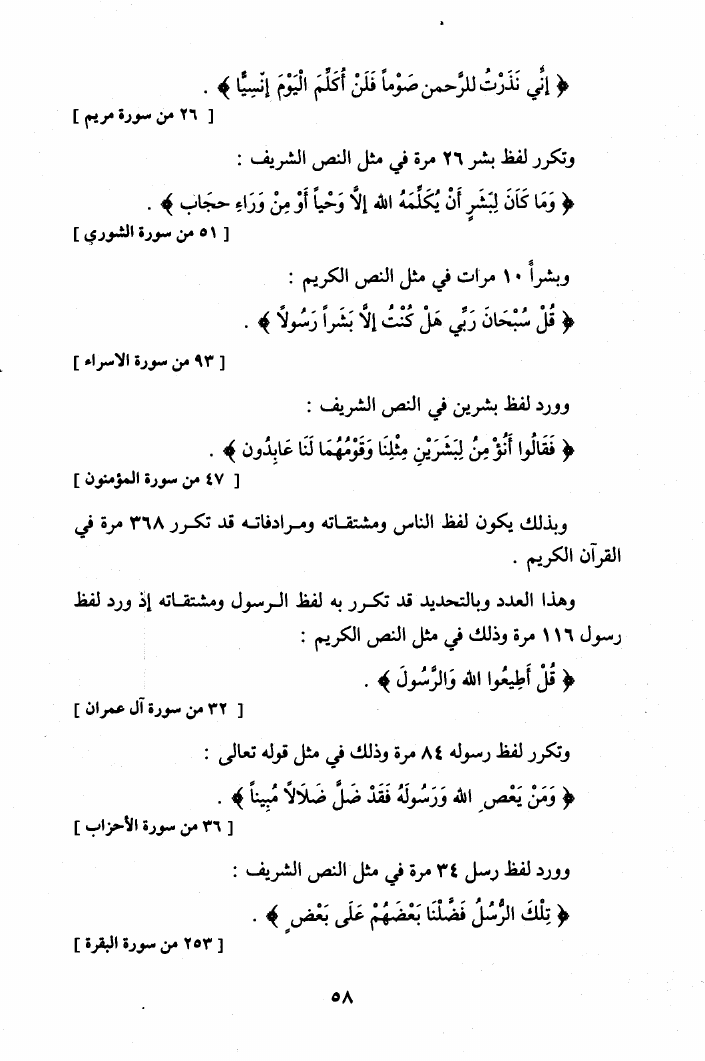 ﴿ إنِّي نَذَرْتُ للرَّحمن صَوْماً فَلَنْ أُكَلِّمَ الْيَوْمَ إنْسِيًّا ﴾ .
[ ٢٦ من سورة مريم ]
وتكرر لفظ بشر ٢٦ مرة في مثل النص الشريف :
﴿ وَمَا كَانَ لِبَشَرٍ أَنْ يُكَلِّمَهُ الله إلاَّ وَحْياً أَوْ مِنْ وَرَاءِ حجَاب ﴾ .
[ ٥١ من سورة الشوري ]
وبشراً ١٠ مرات في مثل النص الكريم :
﴿ قُلْ سُبْحَانَ رَبِّي هَلْ كُنْتُ إلاَّ بَشَراً رَسُولاً ﴾ .
[ ٩٣ من سورة الاسراء ]
وورد لفظ بشرين في النص الشريف :
﴿ فَقَالُوا أَنُؤْمِنُ لِبَشَرَيْنِ مِثْلِنَا وَقَوْمُهُمَا لَنَا عَابِدُون ﴾ .
[ ٤٧ من سورة المؤمنون ]
وبذلك يكون لفظ الناس ومشتقـاته ومـرادفاتـه قد تكـرر ٣٦٨ مرة في
القرآن الكريم .
وهذا العدد وبالتحديد قد تكـرر به لفظ الـرسول ومشتقـاته إذ ورد لفظ
رسول ١١٦ مرة وذلك في مثل النص الكريم :
﴿ قُلْ أَطِيعُوا الله وَالرَّسُولَ ﴾ .
[ ٣٢ من سورة آل عمران ]
وتكرر لفظ رسوله ٨٤ مرة وذلك في مثل قوله تعالى :
﴿ وَمَنْ يَعْصِ الله وَرَسُولَهُ فَقَدْ ضَلَّ ضَلَالاً مُبِيناً ﴾ .
[ ٣٦ من سورة الأحزاب ]
وورد لفظ رسل ٣٤ مرة في مثل النص الشريف :
﴿ تِلْكَ الرُّسُلُ فَضَّلْنَا بَعْضَهُمْ عَلَى بَعْضٍ ﴾ .
[ ٢٥٣ من سورة البقرة ]
٥٨